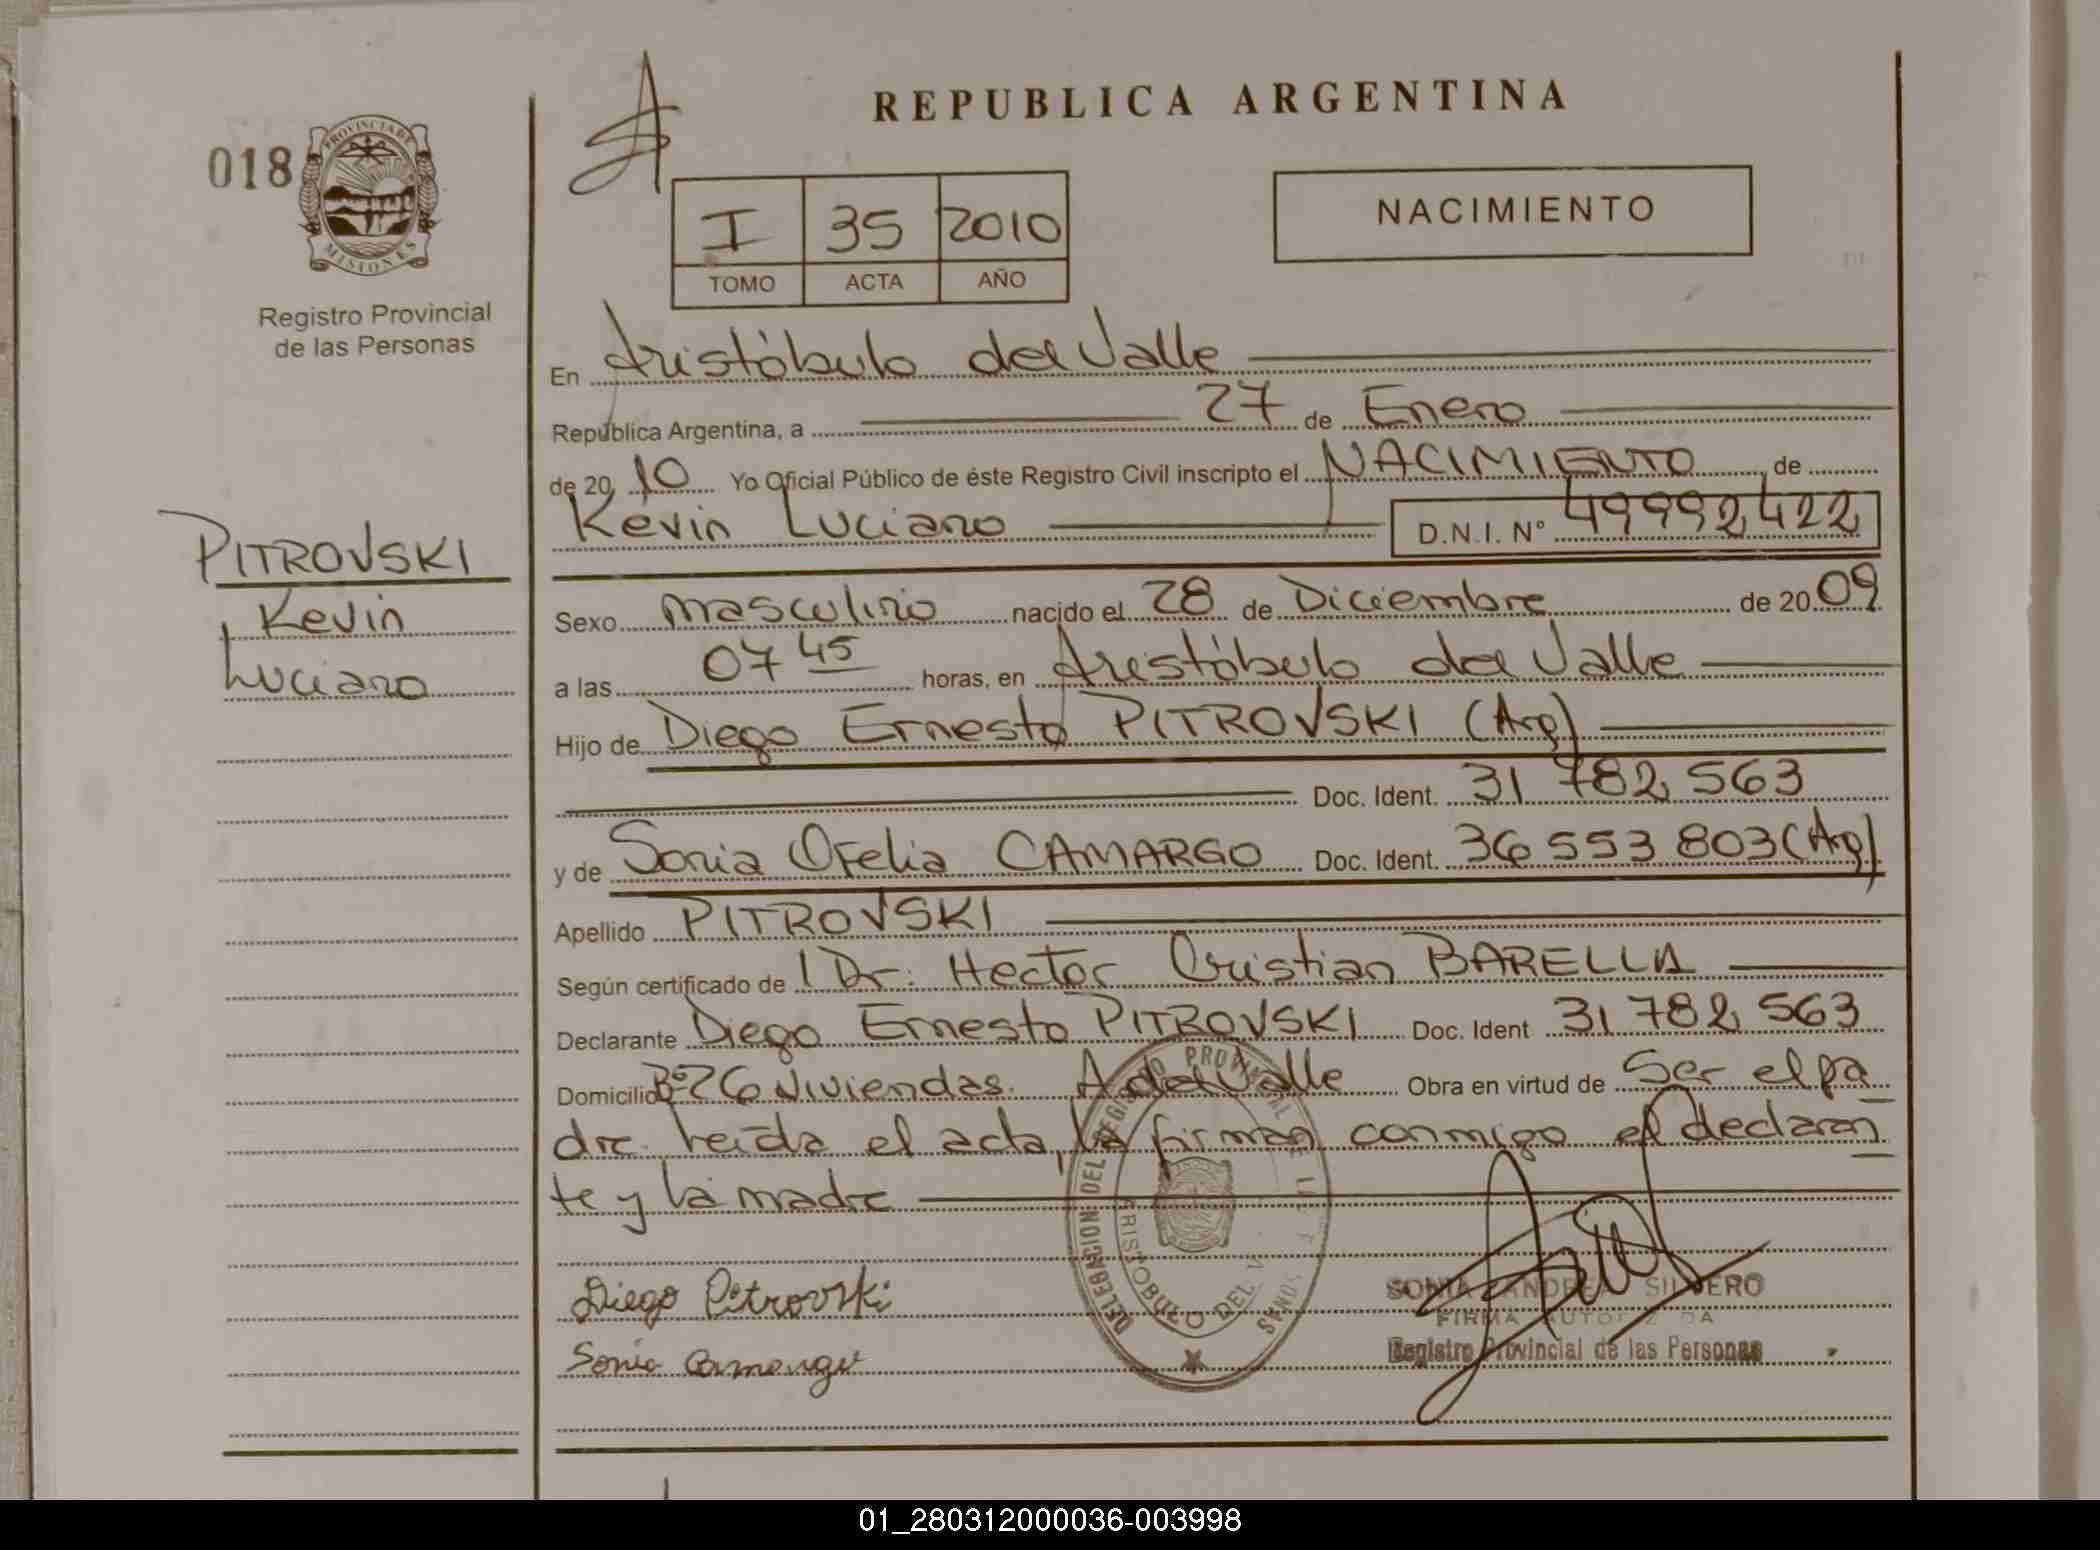 REPUBLICA ARGENTINA
018
PROVINCIA DE
MISIONES
Registro Provincial
de las Personas
I 35 2010
TOMO ACTA AÑO
NACIMIENTO
En Aristóbulo del Valle
República Argentina, a 27 de Enero
de 2010 Yo Oficial Público de éste Registro Civil inscripto el NACIMIENTO, de
Kevin Luciano D.N.I. Nº 49992422
PITROVSKI
Kevin
Luciano
Sexo masculino nacido el 28 de Diciembre de 2009
a las 07 45 horas, en Aristóbulo del Valle
Hijo de Diego Ernesto PITROVSKI (Arg)
Doc. Ident. 31 782 563
y de Sonia Ofelia CAMARGO Doc. Ident. 36 553 803 (Arg)
Apellido PITROVSKI
Según certificado de l Dr: Hector Cristian BARELLA
Declarante Diego Ernesto PITROVSKI Doc. Ident 31 782 563
Domicilio Bº 26 Viviendas. A del Valle Obra en virtud de Ser el pa
dre. Leída el acta, la firman conmigo el declaran
te y la madre
Diego Pitrovski
Sonia
DELEGACION DEL REGISTRO PROVINCIAL DE
ARISTOBULO DEL V
SONIA ANDREA SILVERO
FIRMA AUTORIZADA
Registro Provincial de las Personas
01_280312000036-003998